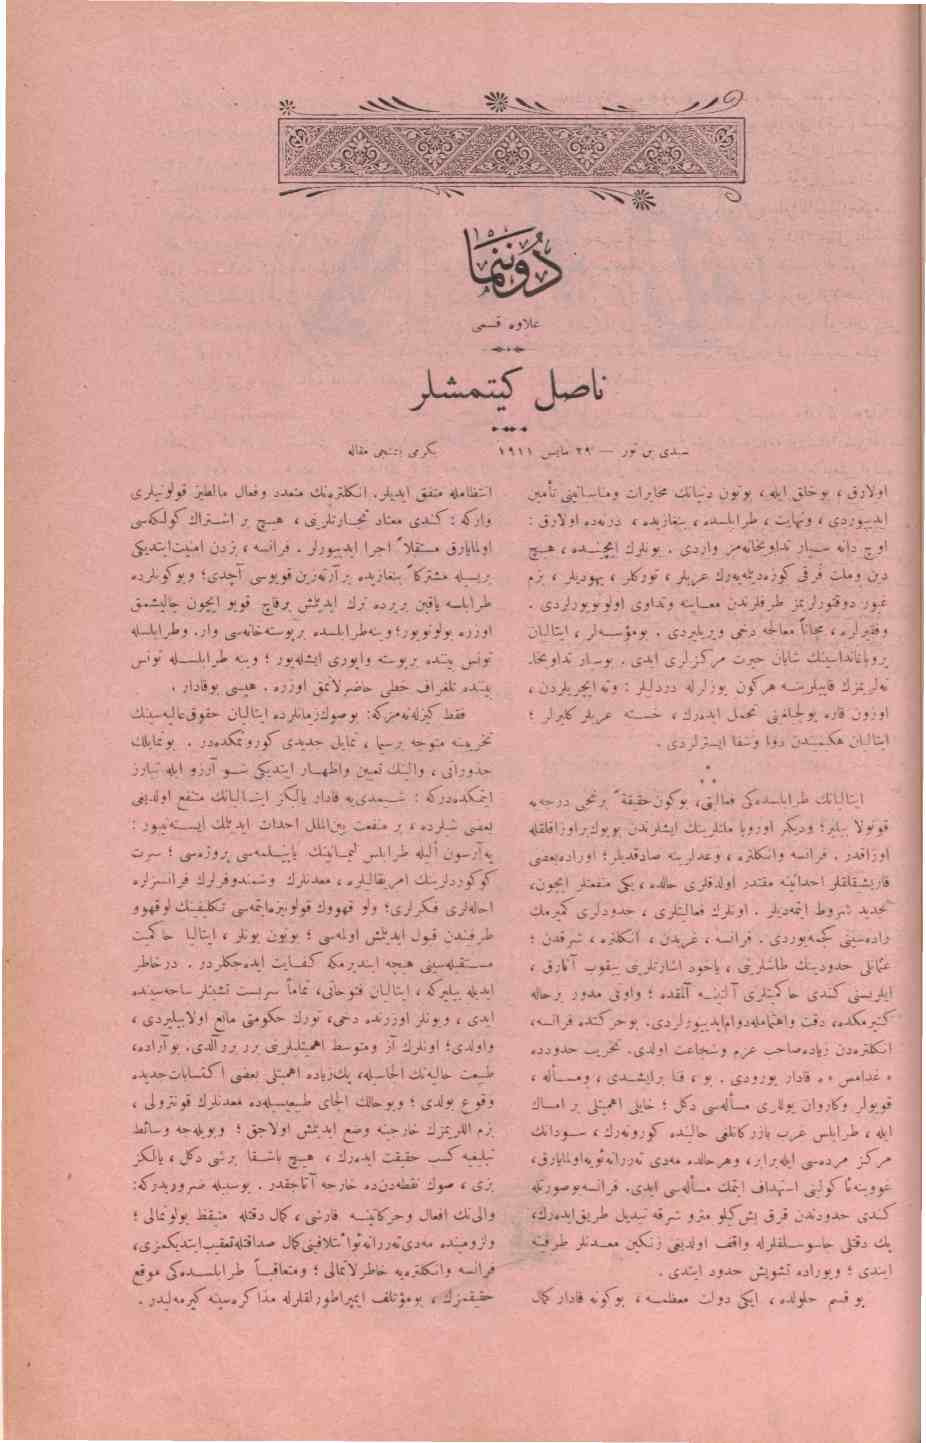 دوننما
علاوه قسمی
ناصل کیتمشلر
سیدی بن نور — ٢٩ مایس ١٩١١
یکرمی بشنجی مقاله
اولارق ، بوخلق ایله ، بوتون دنیانك مخابرات ومناساتنی تأمین
ایدییوردی ، ونهایت ، طرابلسده ، بنغازیده ، درنه‌ده اولارق :
اوچ دانه سیار تداویخانه‌مز واردی . بونلرك ایچنده ، هیچ
دین وملت فرقی کوزه‌دیلمه‌یه‌رك عربلر ، تورکلر ، یهودیلر ، بزم
غیور دوقتورلریمز طرفلرندن معاینه وتداوی اولونویورلردی .
وفقیرلره ، مجاناً معالجه دخی ویریلیردی . بومؤسسه‌لر ، ایتالیان
پروپاغانداسینك شایان حیرت مرکزلری ایدی . بوسیار تداویخا-
نه‌لریمزك قاپیلرینه هرکون یوزلرله دردلیلر : وته ایچریلردن ،
اوزون قاره یولجیلغنی تحمل ایده‌رك ، خسته عربلر کلیرلر ؛
ایتالیان حکیمندن دوا وشفا ایسترلردی .
ایتالیانك طرابلسده‌کی فعالیتی ، بوکون حقیقةً برنجی درجه‌یه
قونولا بیلیر ؛ ودیکر اوروپا ملتلرینك ایشلرندن بویوك براوزاقلقله
اوزاقدر . فرانسه وانکلتره ، وعدلرینه صادقدیلر ؛ اوراده‌بعضی
قاریشقلقلر احداثینه مقتدر اولدقلری حالده ، یکی منفعتلر ایچون،
تجدید شروط ایتمه‌دیلر . اونلرك فعالیتلری ، حدودلری کمیرمك
راده‌سینی کچمه‌یوردی . فرانسه ، غربدن ، انکلتره ، شرقدن ؛
عثمانلی حدودینك طاشلرینی ، یاخود اشارتلرینی ییقوب آتارق ،
ایلریسنی کندی حاکمیتلری آلتینه آلمقده ؛ واونی مدور برحاله
کتیرمکده، دقت واهتمامله‌دوام‌ایدییورلردی. بوحرکتده فرانسه،
انکلتره‌دن زیاده‌صاحب عزم وشجاعت اولدی. تخریب حدودده
« غدامس » ه قادار یورودی . بو ، فنا برایشدی ، ومسأله ،
قویولر وکاروان یوللری مسأله‌سی دکل ؛ خایلی اهمیتلی بر امساك
ایله ، طرابلس غرب بازرکانلغی حالینده کورونه‌رك ، سودانك
مرکز مرده‌سی ایله‌برابر ، وهرحالده مه‌دی ته‌ررانه‌ئویه‌اولمایارق،
کندی حدودندن قرق بش‌کیلو مترو شرقه تبدیل طریق‌ایده‌رك،
پك دقتلی جاسوسلقلرله واقف اولدیغی زنکین معدنلر طرفنه
ایندی ؛ وبوراده تشویش حدود ایتدی .
بو قسم حلولده ، ایکی دولت معظمه ، بوکونه قادار کمال
انتظامله متفق ایدیلر. انکلتره‌نك متعدد وفعال مالطیز قولونیلری
وارکه : کندی معتاد تجارتلرینی ، هیچ بر اشتراك کولکه‌سی
اولمایارق مستقلاً اجرا ایدییورلر . فرانسه ، بزدن امنیت‌ایتدیکی
بریسله مشترکاً بنغازیده برآرته‌زین قویوسی آچدی؛ وبوکونلرده
طرابلسه یاقین بریرده ترك ایدیلمش برقاچ قویو ایچون چالیشمق
اوزره بولونویور؛ وینه‌طرابلسده برپوسته‌خانه‌سی وار. وطرابلسله
تونس بیننده برپوسته واپوری ایشله‌یور ؛ وینه طرابلسله تونس
بیننده تلغراف خطی حاضرلانمق اوزره . هپسی بوقادار .
فقط کیزله‌نه‌مزکه: بوصوك‌زمانلرده ایتالیان حقوق‌عالیه‌سینك
تخریبینه متوجه برسیا ، تمایل جدیدی کورونمکده‌در . بوتمایلك
جذوراتی ، والینك تعیین واظهار ایتدیکی شو آرزو ایله تبارز
ایتمکده‌درکه : شیمدی‌یه قادار یالکز ایتالیانك منتفع اولدیغی
بعضی شیلرده ، بر منفعت بین‌الملل احداث ایدیلمك ایسته‌نییور :
په‌آرسون الیله طرابلس لیمانینك یاپیلمه‌سی پروژه‌سی ؛ سرت
کوکوردلرینك امریقالیلره ، معدنلرك وشمندوفرلرك فرانسزلره
احاله‌لری فکرلری؛ ولو قهووك قولونیزه‌ایتمه‌سی تکلیفینك لوقهوو
طرفندن قبول ایدیلمش اولمه‌سی ؛ بوتون بونلر ، ایتالیا حاکمیت
مستقبله‌سینی هیچه ایندیرمکه کفایت ایده‌جکلردر . درخاطر
ایدیله بیلیرکه ، ایتالیان فتوحاتی، تماماً سربست تشبثلر ساحه‌سینده
ایدی ، وبونلر اوزرنده دخی، تورك حکومتی مانع اولابیلیردی ،
واولدی؛ اونلرك آز ومتوسط اهمیتلیلرینی برر برر آلدی. بوآراده،
طبیعت حالیه‌نك الجاسیله، پك‌زیاده اهمیتلی بعضی اکتسابات‌جدیده
وقوع بولدی ؛ وبوحالك الجای طبیعیسیله‌ده معدنلرك قونترولی ،
بزم اللریمزك خارجینه وضع ایدیلمش اولاجق ؛ وبویله‌جه وسائط
تبلیغیه کسب حقیقت ایده‌رك ، هیچ باشقا برشی دکل ، یالکز
بزی ، صوك نقطه‌دن‌ده خارجه آتاجقدر . بوسبیله ضروریدرکه:
والی‌نك افعال وحرکاتینه قارشی ، کمال دقتله متیقظ بولونمالی ؛
فرانسه وانکلتره‌یه خاطرلاتمالی ؛ ومتعاقباً طرابلسده‌کی موقع
حقیقیمزك ، بومؤتلف ایمپراطورلقلرله مذاکره‌سینه کیرمه‌لیدر .